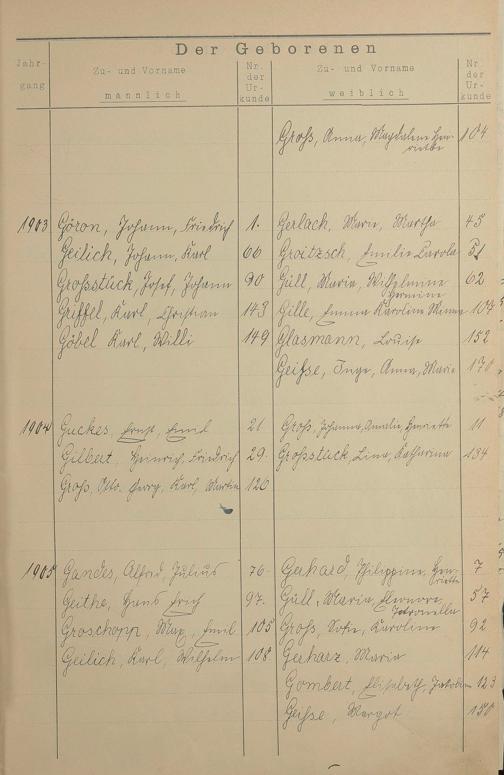 Der Geborenen
Jahr-
gang
Zu- und Vorname
männlich
Nr.
der
Ur-
kunde
Zu- und Vorname
weiblich
Nr
der
Ur-
kunde
Groß, Anna, Magdalene Hen- 104
riette
1903 Göron, Johann, Friedrich 1. Gerlach, Marie, Martha 45
Geilich, Johann, Karl 66 Groitzsch, Emilie Carola 51
Großstück, Josef, Johann 90 Güll, Maria, Wilhelmine 62
Hermine
Griffel, Karl, Christian 143 Gille, Emma Karolina Minna 107
Göbel Karl, Willi 149 Glasmann, Louise 152
Geiße, Inge, Anna, Maria 170
1904 Guckes, Ernst, Emil 21 Groß, Johanna, Amalie, Henriette 11
Gilbert, Heinrich, Friedrich 29. Großstück, Lina, Katharina 134
Groß, Otto, Georg, Karl, Martin 120
1905 Gandes, Alfred, Julius 76. Gerhard, Philippine, Hen- 7
riette
Geithe, Hans Erich 97. Güll, Maria, Eleonore, 57
Petronella
Groschopp, Max, Emil 105 Groß, Sofie, Karoline 92
Geilich, Karl, Wilhelm 108 Gerharz, Maria 114
Gombert, Elisabeth, Jakobine 123
Geiße, Margot 150